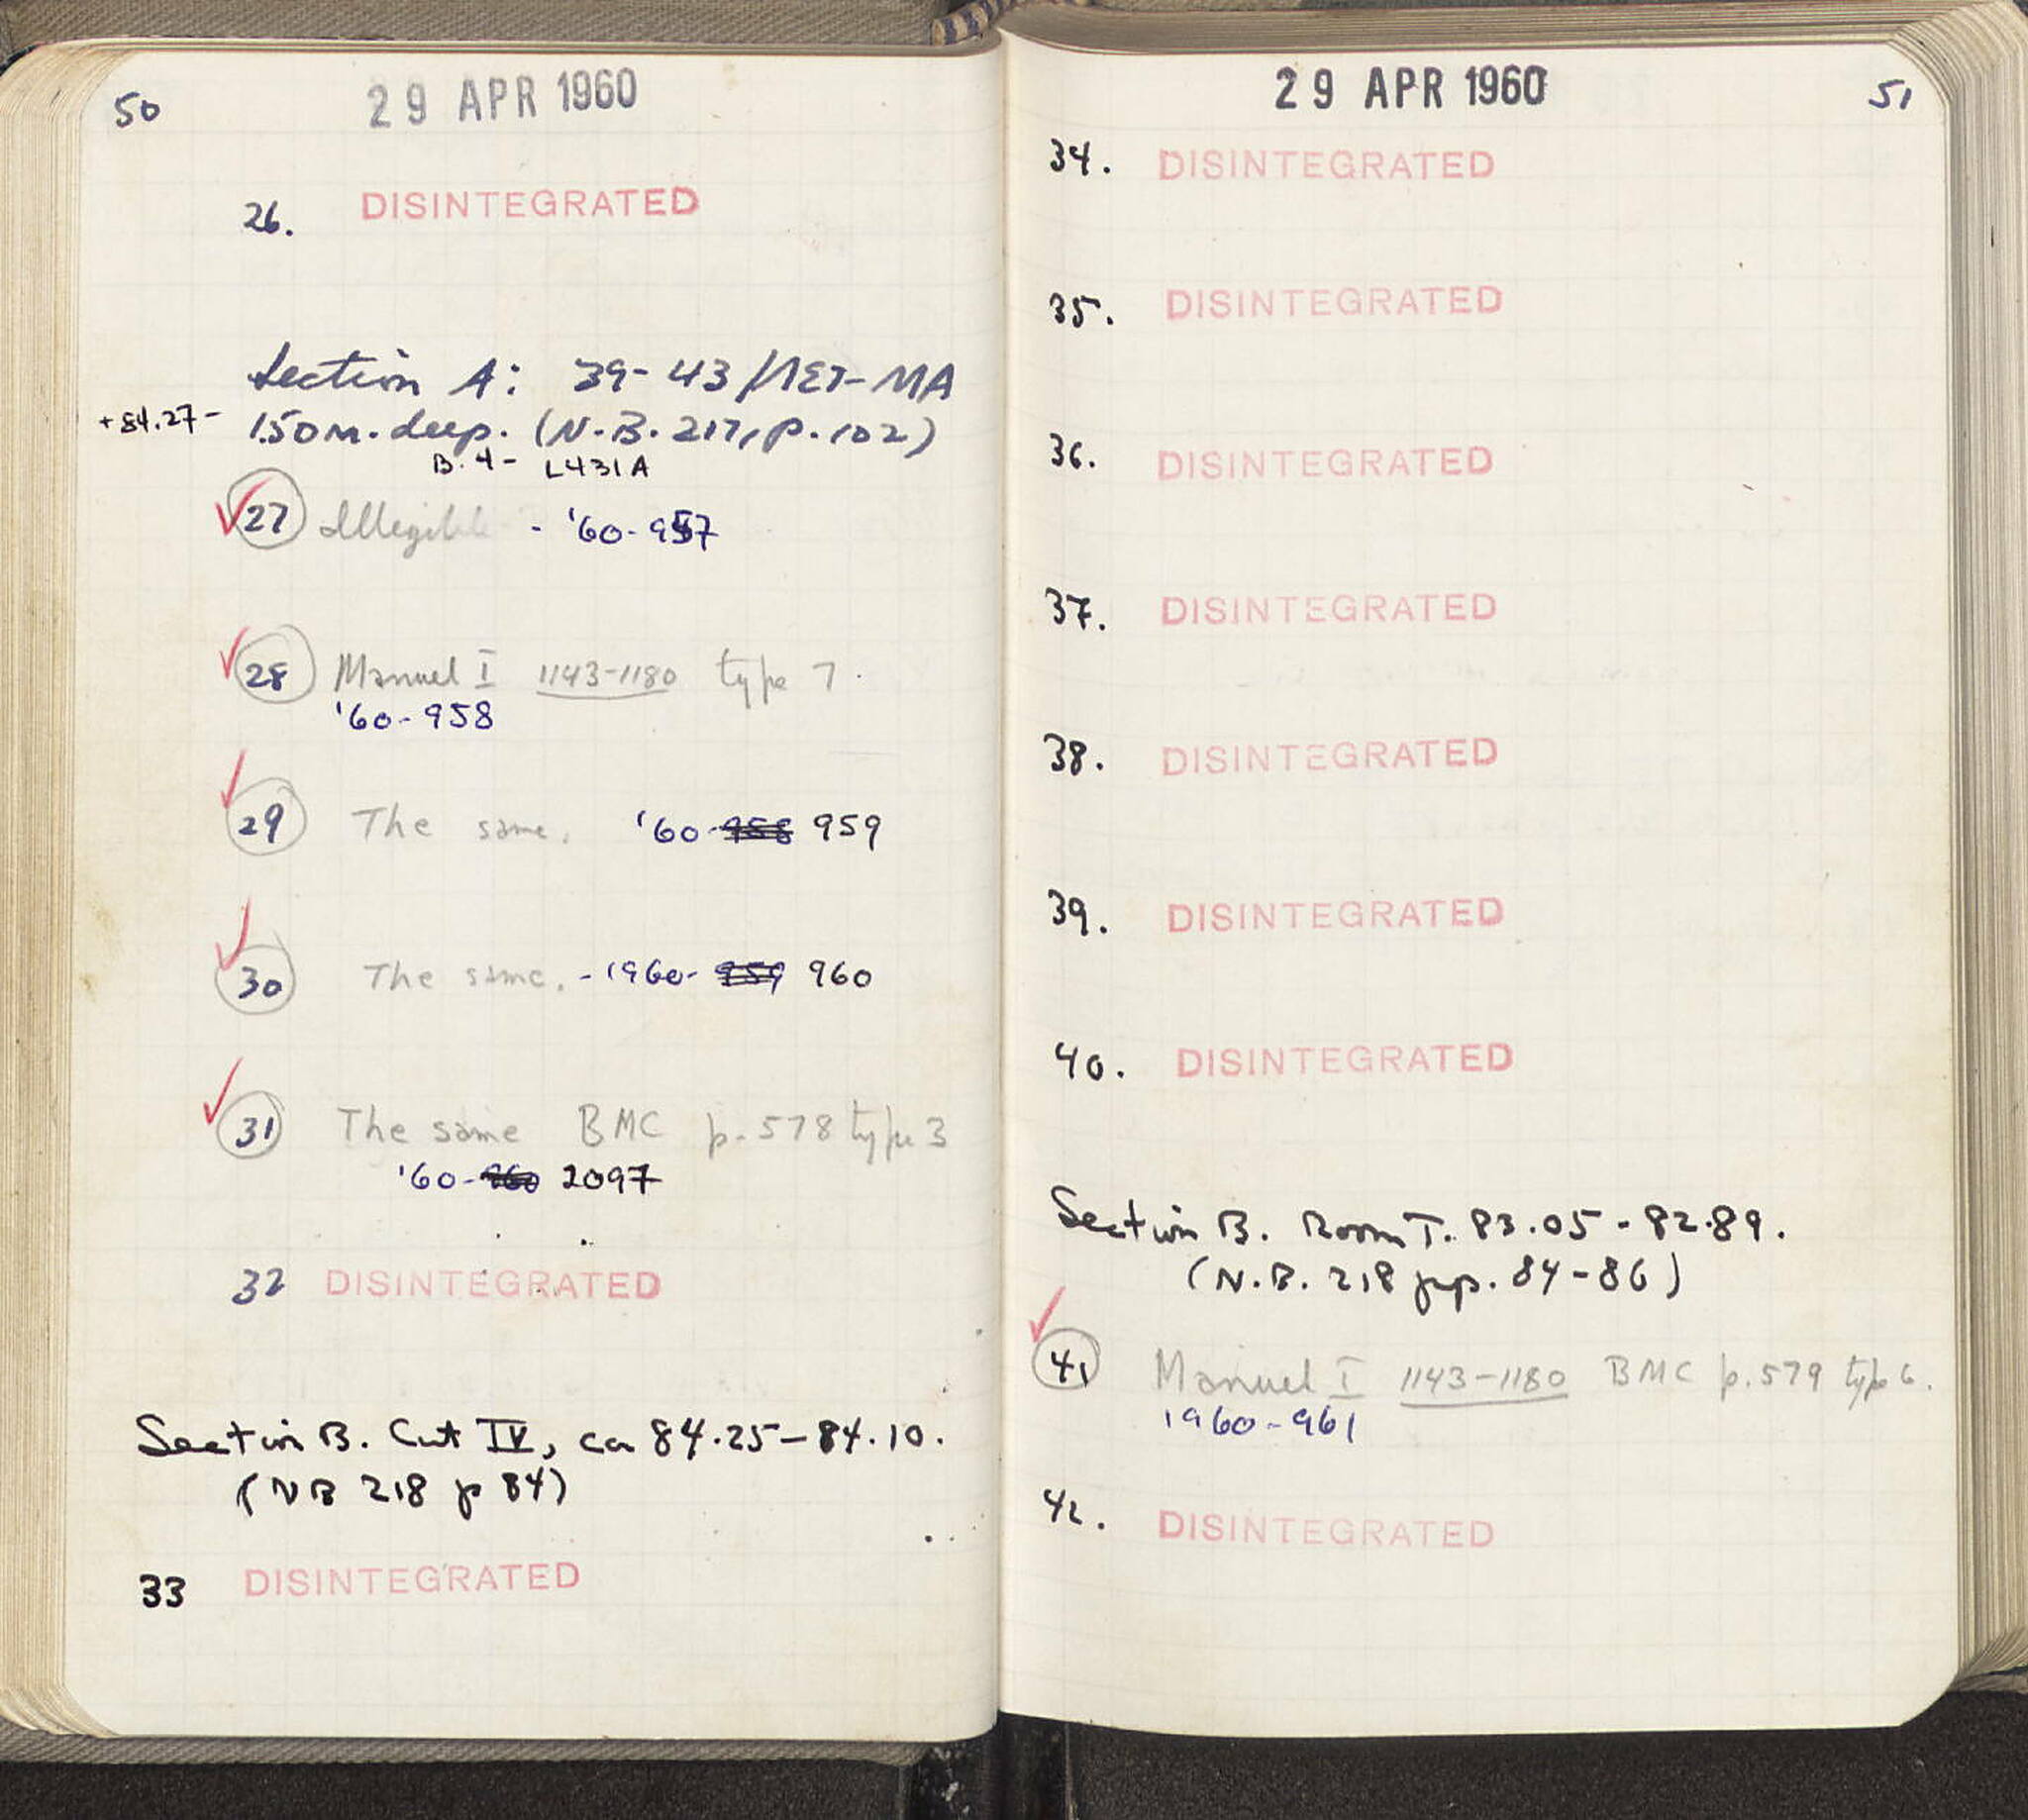 50
29 APR 1960
26. DISINTEGRATED
Section A: 39-43/ΛΣΤ-ΜΑ
+84.27- 1.50m. deep. (N.B. 217, p. 102)
B. 4- L431A
27 Illegible - '60-957
28 Manuel I 1143-1180 type 7.
'60-958
29 The same. '60-958 959
30 The same. -1960- 959 960
31 The same BMC p. 578 type 3
'60-960 2097
32 DISINTEGRATED
Section B. Cut IV, ca 84.25-84.10.
(NB 218 p 84)
33 DISINTEGRATED
29 APR 1960
51
34. DISINTEGRATED
35. DISINTEGRATED
36. DISINTEGRATED
37. DISINTEGRATED
38. DISINTEGRATED
39. DISINTEGRATED
40. DISINTEGRATED
Section B. Room T. 83.05-82.89.
(N.B. 218 pp. 84-86)
41 Manuel I 1143-1180 BMC p. 579 type 6.
1960-961
42. DISINTEGRATED